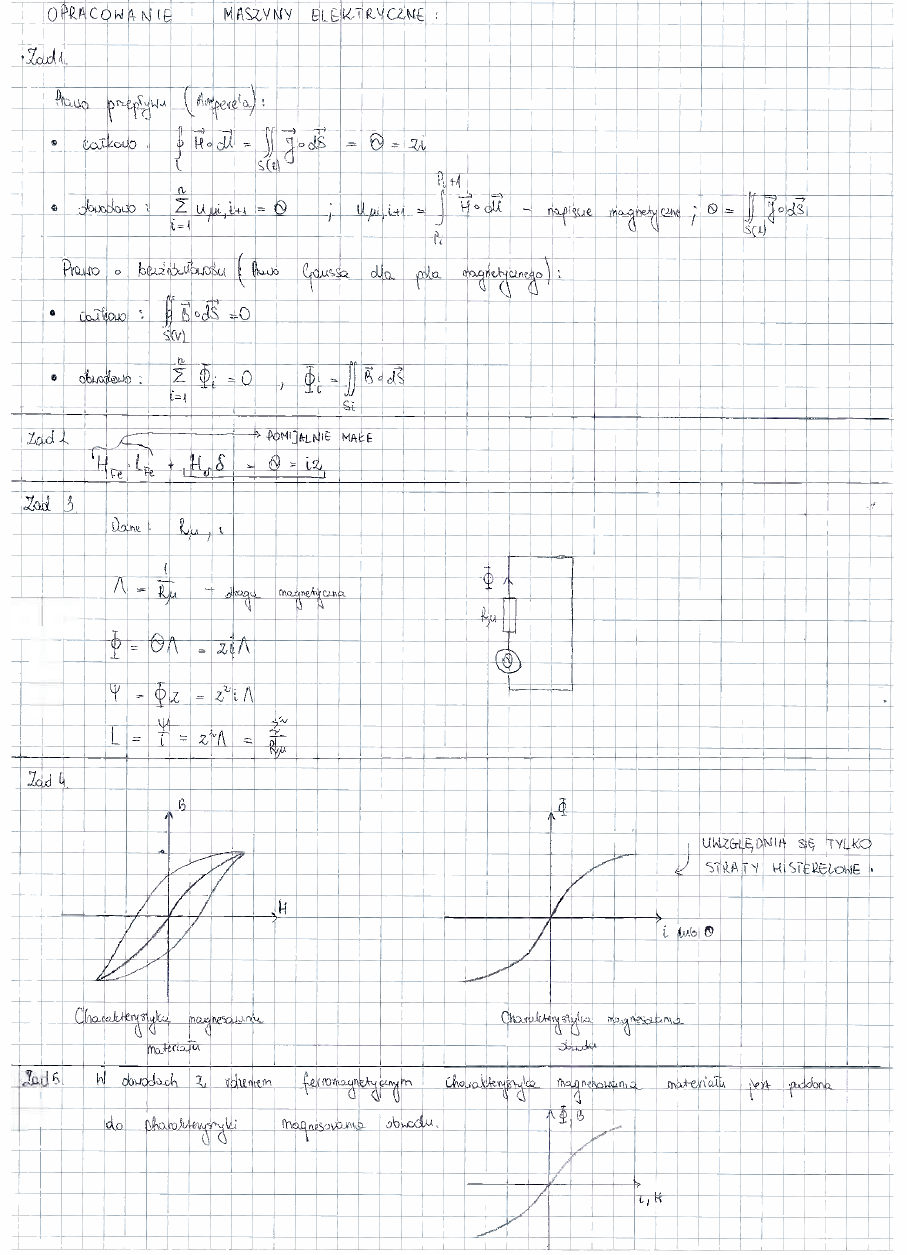 OPRACOWANIE MASZYNY ELEKTRYCZNE:
• Zad 1.
Prawo przepływu (Ampere'a):
• całkowo: ∮_l H⃗∘dl⃗ = ∬_S(l) J⃗∘dS⃗ = Θ = zi
• obwodowo: Σ_{i=1}^{n} U_{μi,i+1} = Θ ; U_{μi,i+1} = ∫_{Pi}^{Pi+1} H⃗∘dl⃗ – napięcie magnetyczne ; Θ = ∬_S(l) J⃗∘dS⃗
Prawo o bezźródłowości (Prawo Gaussa dla pola magnetycznego):
• całkowo: ∯_S(V) B⃗∘dS⃗ = 0
• obwodowo: Σ_{i=1}^{n} Φ_i = 0 , Φ_i = ∬_Si B⃗∘dS⃗
Zad 2 → POMIJALNIE MAŁE
H_Fe · l_Fe + H_δ δ = Θ = iz
Zad 3
Dane: Rμ, i
Λ = 1/Rμ – magnetyczna
Φ = ΘΛ = ziΛ
Ψ = Φz = z²iΛ
L = Ψ/i = z²Λ = z²/Rμ
Φ
Rμ
Θ
Zad 4.
B
H
Φ
i lub Θ
UWZGLĘDNIA SIĘ TYLKO
STRATY HISTEREZOWE.
Charakterystyka magnesowania
materiału
Charakterystyka magnesowania
obwodu
Zad 5. W obwodach z rdzeniem ferromagnetycznym charakterystyka magnesowania materiału jest podobna
do charakterystyki magnesowania obwodu.
Φ, B
i, H